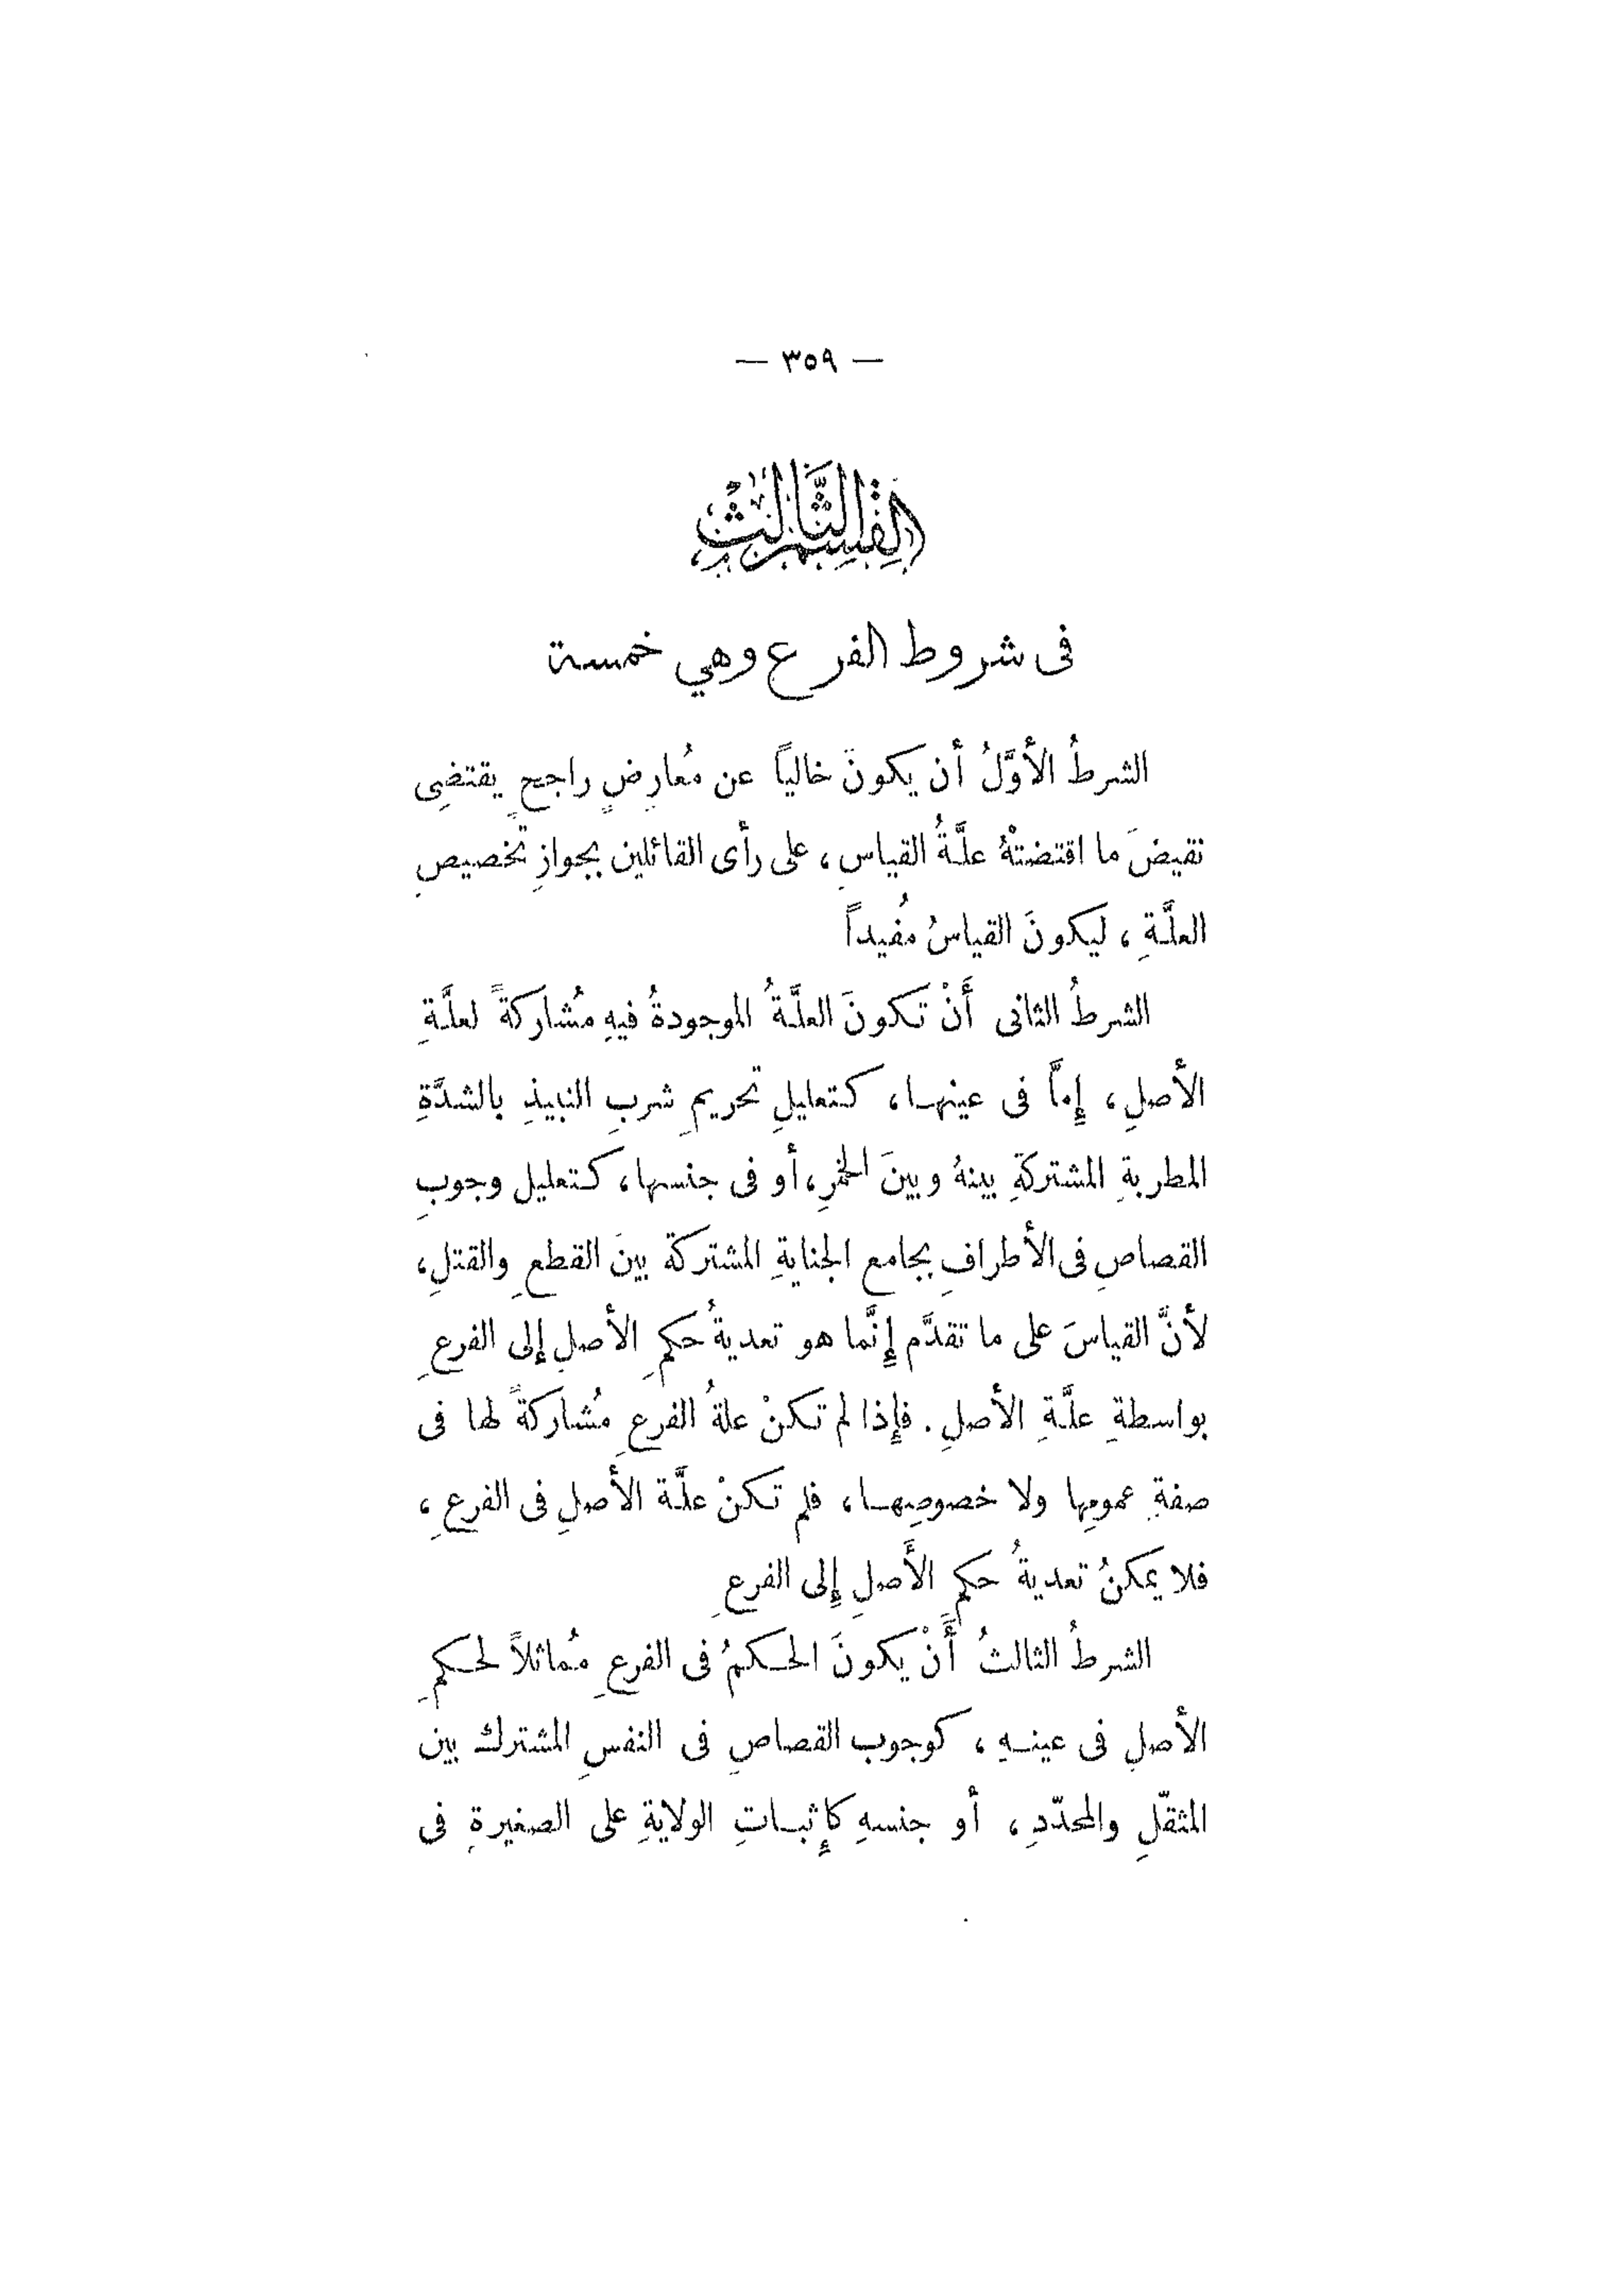 — ٣٥٩ —
القِسْمُ الثَّالِثُ
فى شروط الفرع وهي خمسة
الشرطُ الأوَّلُ أن يكونَ خالياً عن مُعارِضٍ راجحٍ يقتضِى
نقيضَ ما اقتضتْهُ علَّةُ القياسِ، على رأى القائلين بجوازِ تخصيصِ
العلَّةِ ، ليكونَ القياسُ مفُيداً
الشرطُ الثانى أَنْ تكونَ العلَّةُ الموجودةُ فيهِ مُشاركةً لعلَّةِ
الأصلِ، إِمَّا فى عينهـا، كتعليلِ تحريمِ شربِ النبيذِ بالشدَّةِ
المطربةِ المشتركةِ بينهُ وبينَ الخمرِ، أو فى جنسها، كتعليل وجوبِ
القصاصِ فى الأطرافِ بجامع الجنايةِ المشتركة بينَ القطعِ والقتلِ،
لأنَّ القياسَ على ما تقدَّم إِنَّما هو تعديةُ حكمِ الأصلِ إلى الفرعِ
بواسطةِ علَّةِ الأصلِ. فإِذا لم تكنْ علةُ الفرعِ مُشاركةً لها فى
صفةِ عمومِها ولا خصوصِهـا، فلم تكنْ علَّة الأصلِ فى الفرعِ،
فلا يمكنُ تعديةُ حكمِ الأَصلِ إِلى الفرعِ
الشرطُ الثالثُ أَنْ يكونَ الحـكمُ فى الفرعِ مُماثلاً لحـكمِ
الأصلِ فى عينـهِ ، كوجوب القصاصِ فى النفسِ المشترك بين
المثقّلِ والمحدّدِ، أو جنسهِ كإِثبـاتِ الولايةِ على الصغيرةِ فى